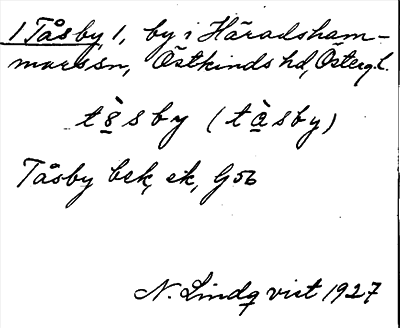 1 Tåsby, 1, by i Häradsham-
marssn, Östkinds hd, Östergl.
tsby (tsby)
Tåsby bek, ek, G56
N. Lindqvist 1927